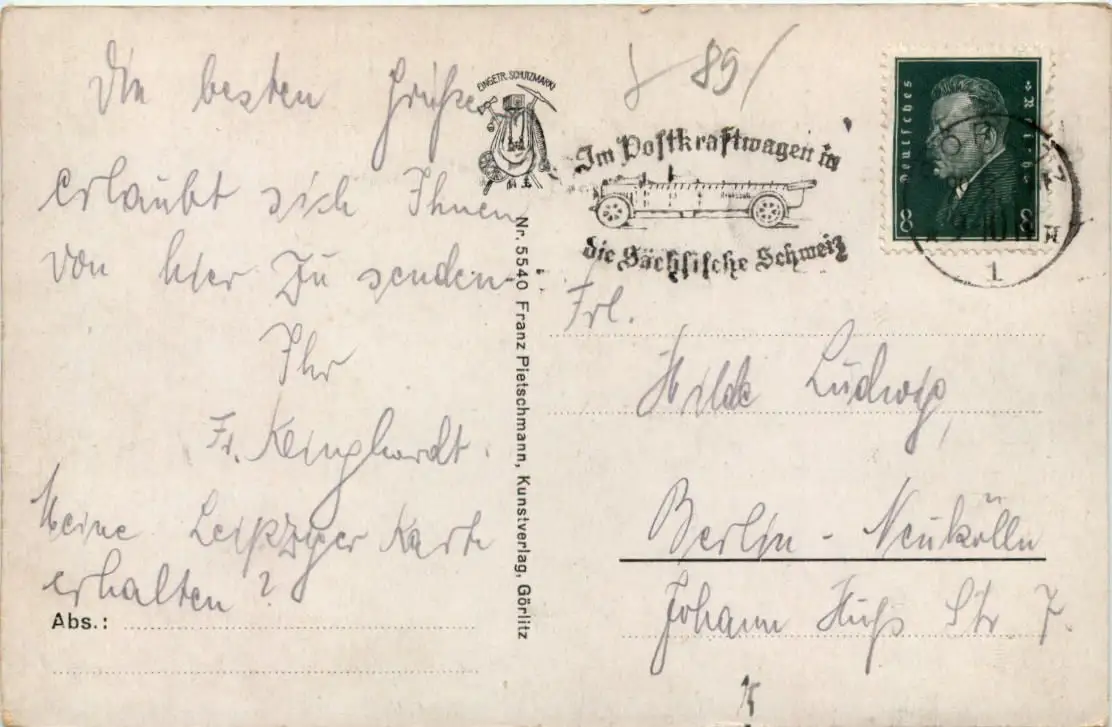 Die besten Grüße
erlaubt sich Ihnen
von hier zu senden
Ihr
Fr.
Meine Leipziger Karte
erhalten?
Abs.:
EINGETR. SCHUTZMARKE
Nr. 5540 Franz Pietschmann, Kunstverlag, Görlitz
89
Im Postkraftwagen in
die Sächsische Schweiz
Deutsches Reich
8 8
1
Frl.
Hilde Ludwig,
Berlin - Neukölln
Johann Huß Str 7.